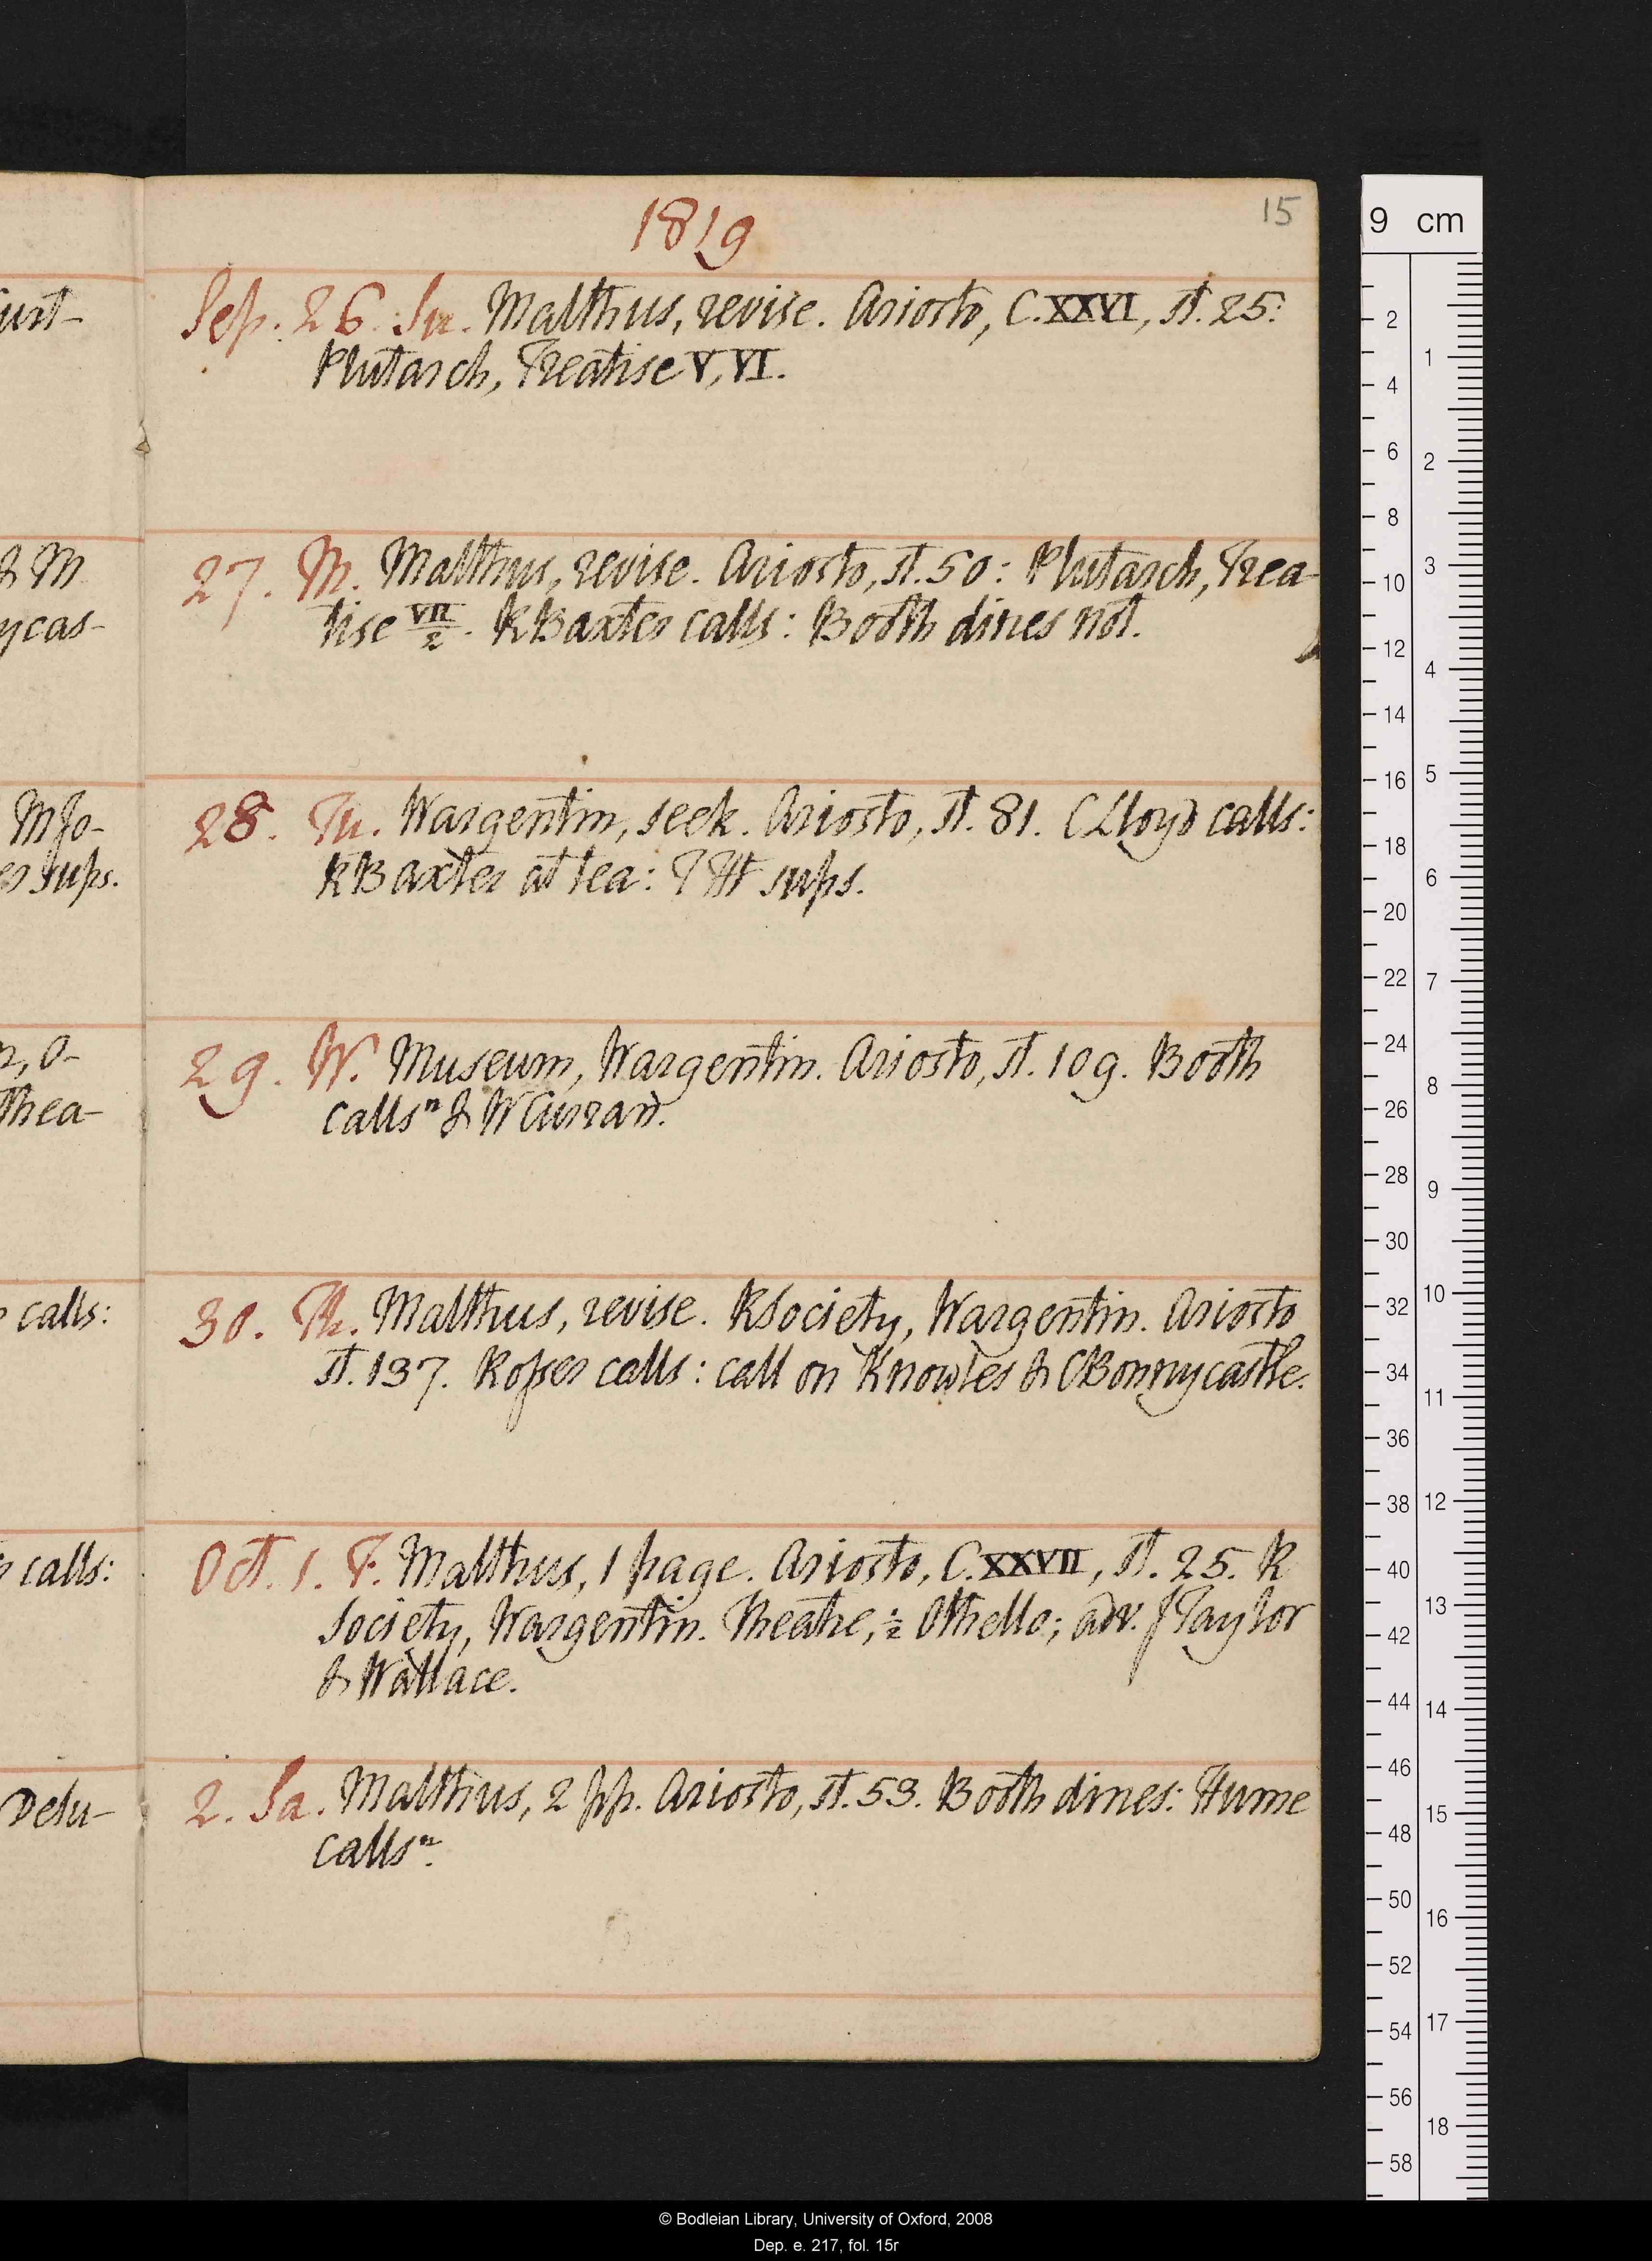 1819
15
Sep. 26. Su. Malthus, revise. Ariosto, C. XXVI, st. 25:
Plutarch, Treatise V, VI.
27. M. Malthus, revise. Ariosto, st. 50: Plutarch, Trea-
tise VII/2. R Baxter calls: Booth dines not.
28. Tu. Wargentin, seek. Ariosto, st. 81. C Lloyd calls:
R Baxter at tea: T T sups.
29. W. Museum, Wargentin. Ariosto, st. 109. Booth
callsⁿ & W Curran.
30. Th. Malthus, revise. R Society, Wargentin. Ariosto
st. 137. Rosser calls: call on Knowles & C Bonnycastle.
Oct. 1. F. Malthus, 1 page. Ariosto, C. XXVII, st. 25. R
Society, Wargentin. Theatre, ½ Othello; adv. J Taylor
& Wallace.
2. Sa. Malthus, 2 pp. Ariosto, st. 53. Booth dines: Hume
callsⁿ.
& M
ycas-
M Jo-
sups.
n, O-
Thea-
calls:
calls:
Delu-
9 cm
2
4
6
8
10
12
14
16
18
20
22
24
26
28
30
32
34
36
38
40
42
44
46
48
50
52
54
56
58
1
2
3
4
5
6
7
8
9
10
11
12
13
14
15
16
17
18
© Bodleian Library, University of Oxford, 2008
Dep. e. 217, fol. 15r